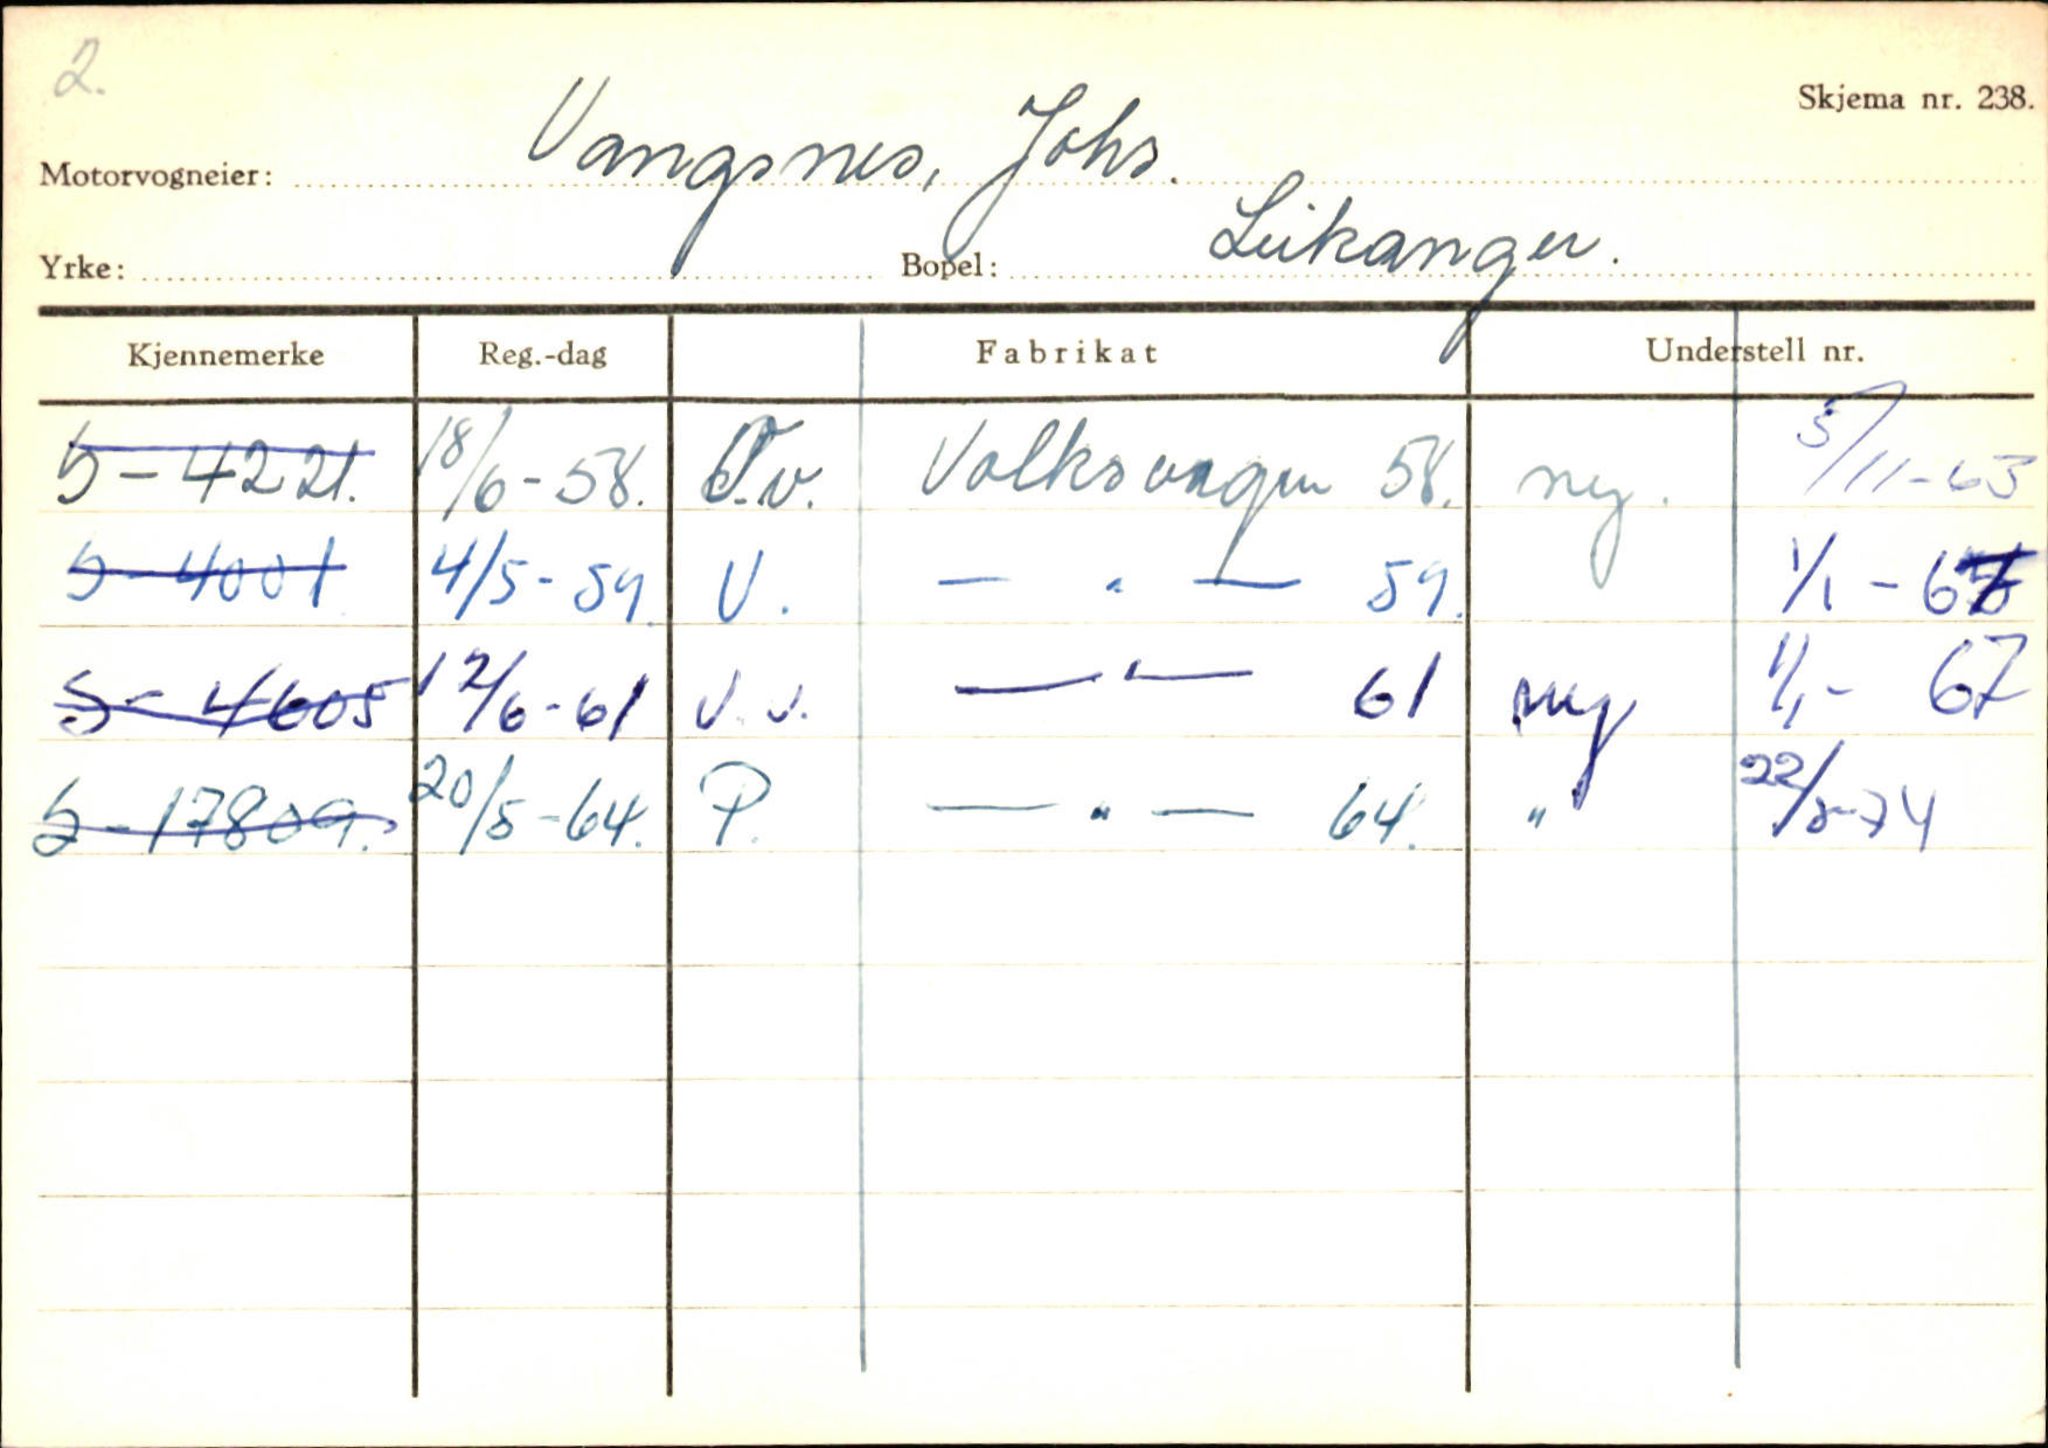 2.
Skjema nr. 238.
Motorvogneier: Vangsnes, Johs.
Yrke: Bopel: Leikanger.
Kjennemerke Reg.-dag Fabrikat Understell nr.
S-4221. 18/6-58. V.v. Volksvagen 58. ny. 5/11-63
S-4001 4/5-59. V. — " — 59. 1/1-67
S-4605 12/6-61 V.v. — " — 61 ny 1/1-67
S-17809. 20/5-64. P. — " — 64. " 22/8-74